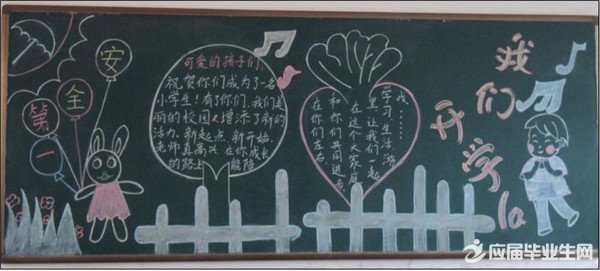 安
全
第
一
可爱的孩子们:
祝贺你们成为了一名
小学生!有了你们,我们美
丽的校园又增添了新的
活力。新起点,新开始,
老师真高兴 在你成长
的路上 能陪
在你们左右
和你们共同进步
在这个大家庭
里让我们一起
学习 生活 游
戏……
我们开学la
应届毕业生网